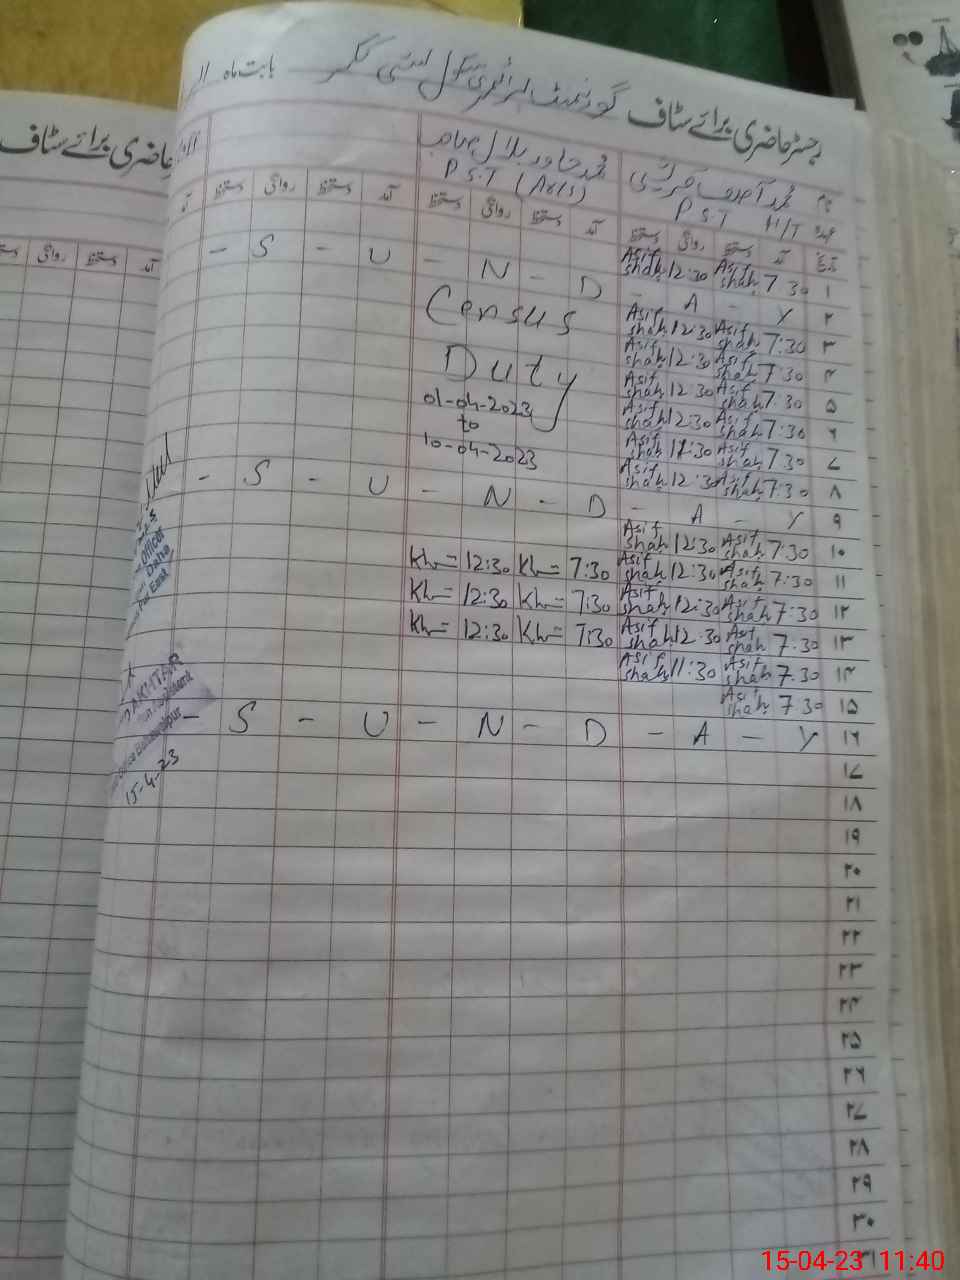 رجسٹر حاضری برائے سٹاف گورنمنٹ پرائمری سکول بابت ماہ
نام محمد آصف قریشی محمد خاور بلال صاحب
عہدہ P.S.T H/T P.S.T (Arts)
تاریخ آمد دستخط روانگی دستخط آمد دستخط روانگی دستخط آمد دستخط روانگی دستخط آمد
۱ 7:30 Asif shah 12:30 Asif shah
۲ - S - U - N - D - A - Y
۳ 7:30 Asif shah 12:30 Asif shah
۴ 7:30 Asif shah 12:30 Asif shah
۵ 7:30 Asif shah 12:30 Asif shah
۶ 7:30 Asif shah 12:30 Asif shah
۷ 7:30 Asif shah 11:30 Asif shah
۸ 7:30 Asif shah 12:30 Asif shah
Census
Duty
01-04-2023
to
10-04-2023
۹ - S - U - N - D - A - Y
۱۰ 7:30 Asif shah 12:30 Asif shah
۱۱ 7:30 Asif shah 12:30 Asif shah 7:30 Kh= 12:30 Kh=
۱۲ 7:30 Asif shah 12:30 Asif shah 7:30 Kh= 12:30 Kh=
۱۳ 7:30 Asif shah 12:30 Asif shah 7:30 Kh= 12:30 Kh=
۱۴ 7:30 Asif shah 11:30 Asif shah
۱۵ 7:30 Asif shah
۱۶ - S - U - N - D - A - Y
۱۷
۱۸
۱۹
۲۰
۲۱
۲۲
۲۳
۲۴
۲۵
۲۶
۲۷
۲۸
۲۹
۳۰
۳۱
Officer
AKHTAR
Bahawalpur
15-4-23
حاضری برائے سٹاف
آمد دستخط روانگی دستخط
15-04-23 11:40